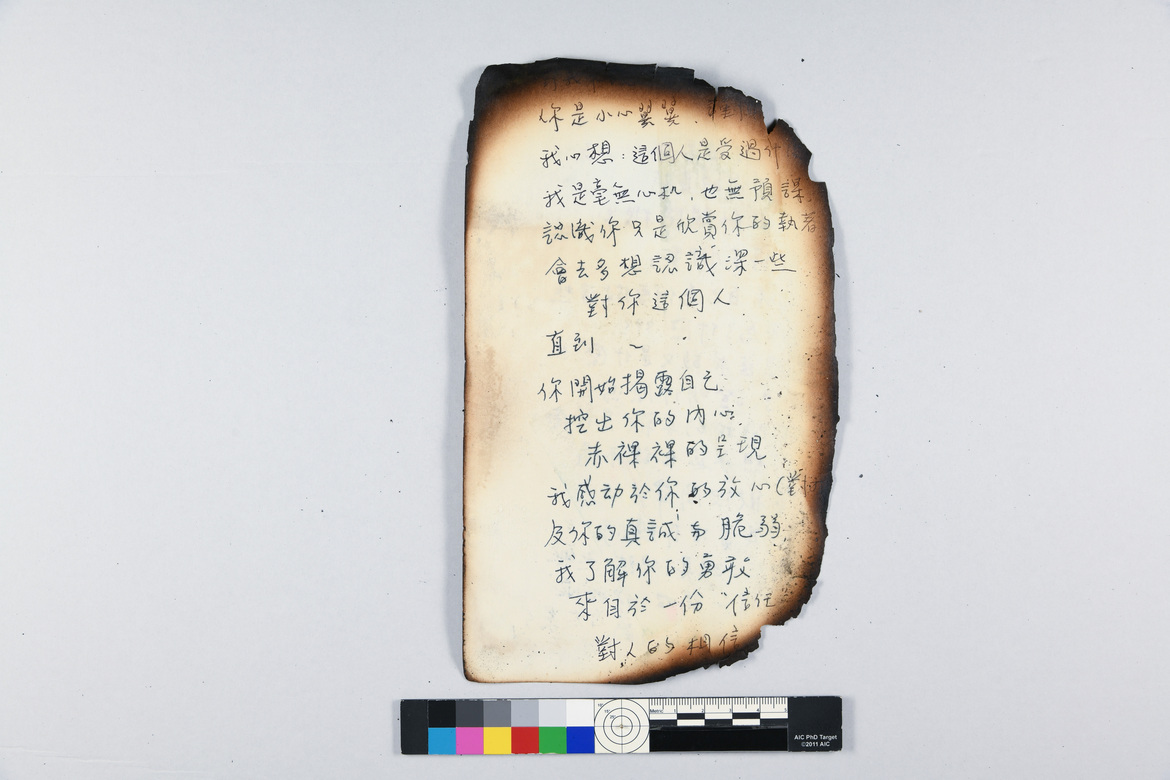 你是小心翼翼、對
我心想：這個人是受過什
我是毫無心机，也無預謀
認識你只是欣賞你的執著
會去多想認識深一些
對你這個人
直到 ~
你開始揭露自己
挖出你的內心
赤裸裸的呈現
我感动於你的放心(對
及你的真誠与脆弱
我了解你的勇敢
來自於一份“信任
對人的相信
AIC PhD Target
©2011 AIC